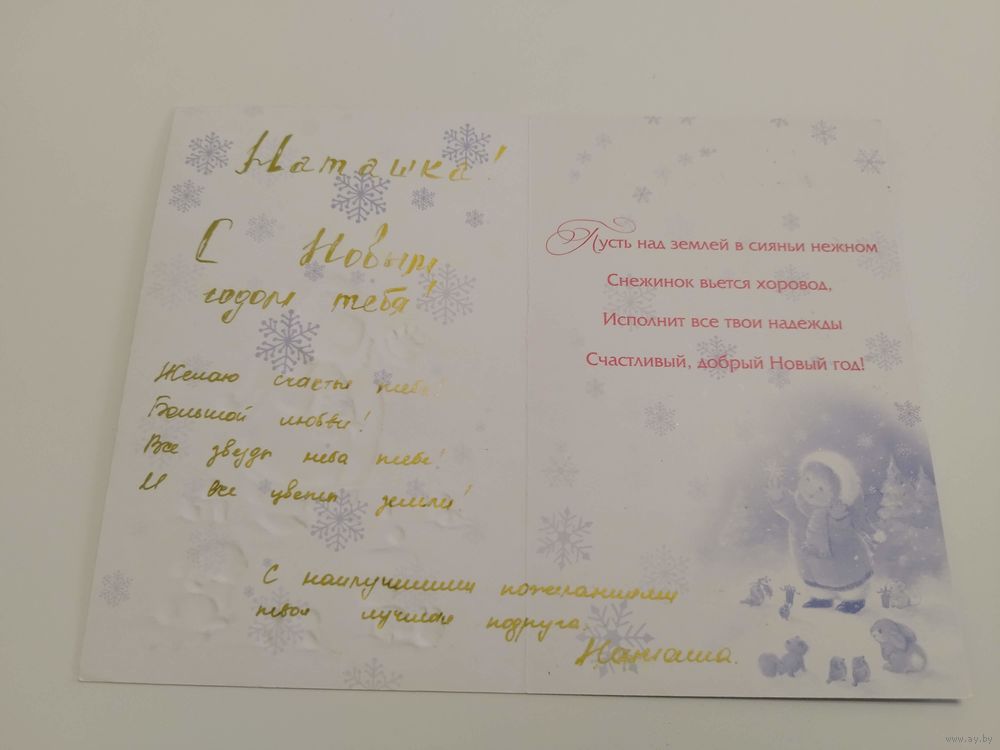 Наташка!
С Новым
годом тебя!
Желаю счастья тебе!
Большой любви!
Все звезды неба тебе!
И все цветы земли!
С наилучшими пожеланиями
твоя лучшая подруга
Наташа.
Пусть над землей в сияньи нежном
Снежинок вьется хоровод,
Исполнит все твои надежды
Счастливый, добрый Новый год!
www.ay.by